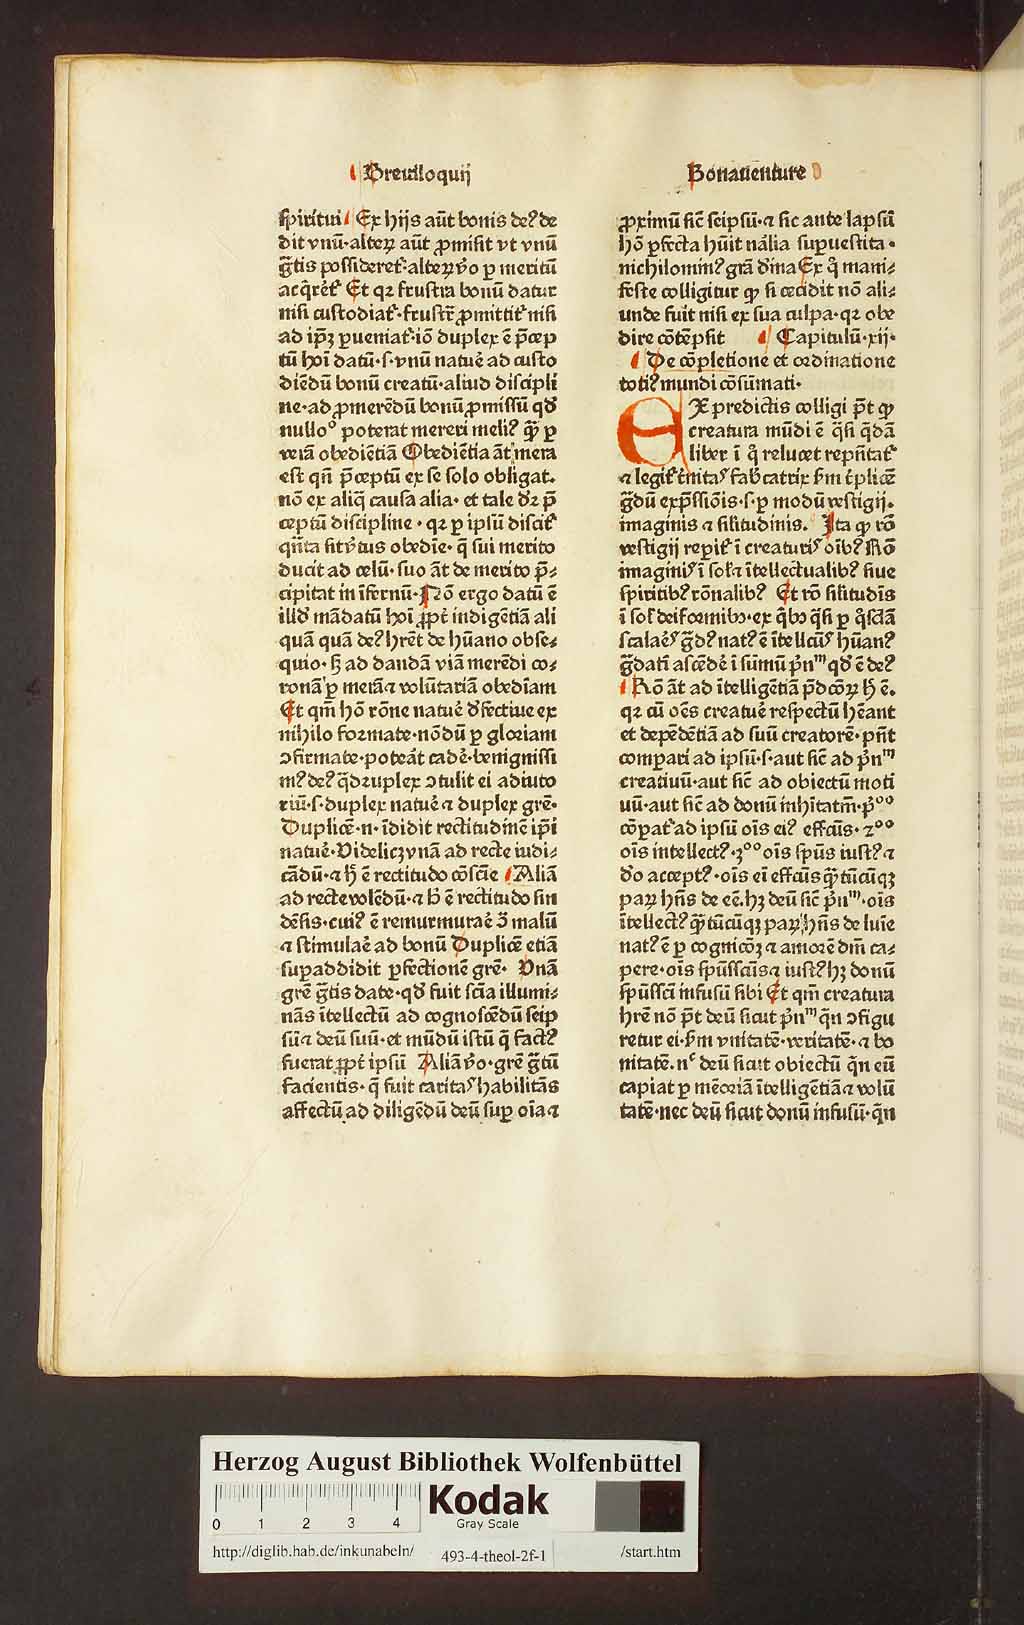 Breuiloquij
Bonauenture
spiritui Ex hijs aūt bonis deꝰ de
dit vnū·alteꝝ aūt ꝓmisit vt vnū
g̃tis possideret᷑·alteꝝ ṽo ꝑ meritū
acq̇ret᷑ Et qꝛ frustra bonū datur
nisi custodiat᷑·frustr̃ ꝓmittit᷑ nisi
ad ip̄ꝫ ꝑueniat᷑·iō duplex ē p̄cep
tū hoı̄ datū·s·vnū nature̾ ad custo
diēdū bonū creatū·aliud discipli
ne·ad ꝓmerēdū bonū ꝓmissū qd̄
nullo° poterat mereri meliꝰ q̄ꝫ ꝑ
verā obediētiā Obediētia āt mera
est qn̄ p̄ceptū ex se solo obligat·
nō ex aliq̄ causa alia· et tale dr̄ p̄
ceptū discipline·qꝛ ꝑ ipsū discit᷑
qn̄ta sit v̓tus obedie·q̄ sui merito
ducit ad celū·suo āt de merito p̄-
cipitat in īfernū·Nō ergo datū ē
illd̄ mādatū hoı̄ ꝓpt̓ indigētiā ali
quā quā deꝰ hr̄et de hūano obse-
quio·sꝫ ad dandā viā merēdi co-
ronā ꝑ merā ⁊ volūtariā obediam
Et qm̄ hō rōne nature̾ d̓fectiue ex
nihilo formate·nōdū ꝑ gloriam
ɔfirmate·poteāt cade̾·benignissi
mꝰ deꝰ q̄druplex ɔtulit ei adiuto
riū·s·duplex nature̾ ⁊ duplex gr̄e·
Duplicē·n·īdidit rectitudinē ip̄i
nature̾·Videlicꝫ vnā ad recte iudi-
cādū·⁊ h̄ ē rectitudo cōsciē Aliā
ad recte volēdū·⁊ h̄ ē rectitudo sin
dēsis·cuiꝰ ē remurmurae̾ ɔ̄ malū
⁊ stimulae̾ ad bonū Duplicē etiā
suꝑaddidit ꝑfectionē gr̄e· Vnā
gr̄e g̃tis date·qd̄ fuit scīa illumi-
nās ītellectū ad cognoscēdū seip
sū ⁊ deū suū·et mūdū istū q̄ factꝰ
fuerat ꝓpt̓ ipsū Aliā ṽo·gr̄e g̃tū
facientis·q̄ fuit caritas habilitās
affectū ad diligēdū deū suꝑ oīa ⁊
ꝓximū sic̄ seipsū·⁊ sic ante lapsū
hō ꝑfecta hūit nālia suꝑuestita·
nichilominꝰ grā d̓ina Ex q̊ mani-
feste colligitur ꝙ si cecidit nō ali-
unde fuit nisi ex sua culpa·qꝛ obe
dire cōtēpsit Capitulū·xij·
De cōpletione et ordinatione
totiꝰ mundi cōsūmati·
EX predictis colligi pōt ꝙ
creatura mūdi ē q̄si q̄dā
liber ı̄ q̊ relucet repn̄tat᷑
⁊ legit᷑ t̓nitas fabͥcatrix ẜm t̓plicē
g̃dū exp̄ssiōis·s·ꝑ modū vestigij·
imaginis ⁊ silitudinis. Ita ꝙ rō
vestigij reꝑit᷑ ı̄ creaturis oı̄bꝰ Rō
imaginis ı̄ sol̓ ⁊ ītellectualibꝰ siue
spiritibꝰ rōnalibꝰ Et rō silitudīs
ı̄ sol̓ deiformibꝰ·ex q̄bꝰ q̄si ꝑ q̊sdā
scalaēs g̃dꝰ natꝰ ē ītellcūs hūanꝰ
g̃datı̄ ascēde̾ ı̄ sūmū p̓nᵐ qd̄ ē deꝰ
Rō āt ad ītelligētiā p̄dcōꝝ h̄ ē·
qꝛ cū oēs creature̾ respectū hēant
et depēdētiā ad suū creatorē·pn̄t
compari ad ipsū·s·aut sic̄ ad p̓nᵐ
creatiuū·aut sic̄ ad obiectū moti
uū·aut sic̄ ad donū inhītatm̄·p̊°°
cōpat᷑ ad ipsū oīs eiꝰ effcūs·2°°
oīs intellectꝰ·3°° oīs spūs iustꝰ ⁊
d̓o acceptꝰ·oīs ei effcūs q̄ꝫtūcūqꝫ
paꝝ hn̄s de eē·hꝫ deū sic̄ p̓nᵐ·oīs
ītellectꝰ q̄ꝫtūcūqꝫ paꝝ hn̄s de luīe
natꝰ ē ꝑ cognicōꝫ ⁊ amorē dm̄ ca-
pere·oīs spūs scūs ⁊ iustꝰ hꝫ donū
spūssc̄i infusū sibi Et qm̄ creatura
hr̄e nō pōt deū sicut p̓nᵐ q̄n ɔfigu
retur ei·ẜm vnitatē·veritatē·⁊ bo
nitatē.nᶜ deū sicut obiectū q̓n eū
capiat ꝑ mēoriā ītelligētiā ⁊ volū
tatē·nec deū sicut donū infusū·q̄n
Herzog August Bibliothek Wolfenbüttel
0 1 2 3 4
Kodak
Gray Scale
http://diglib.hab.de/inkunabeln/ 493-4-theol-2f-1 /start.htm